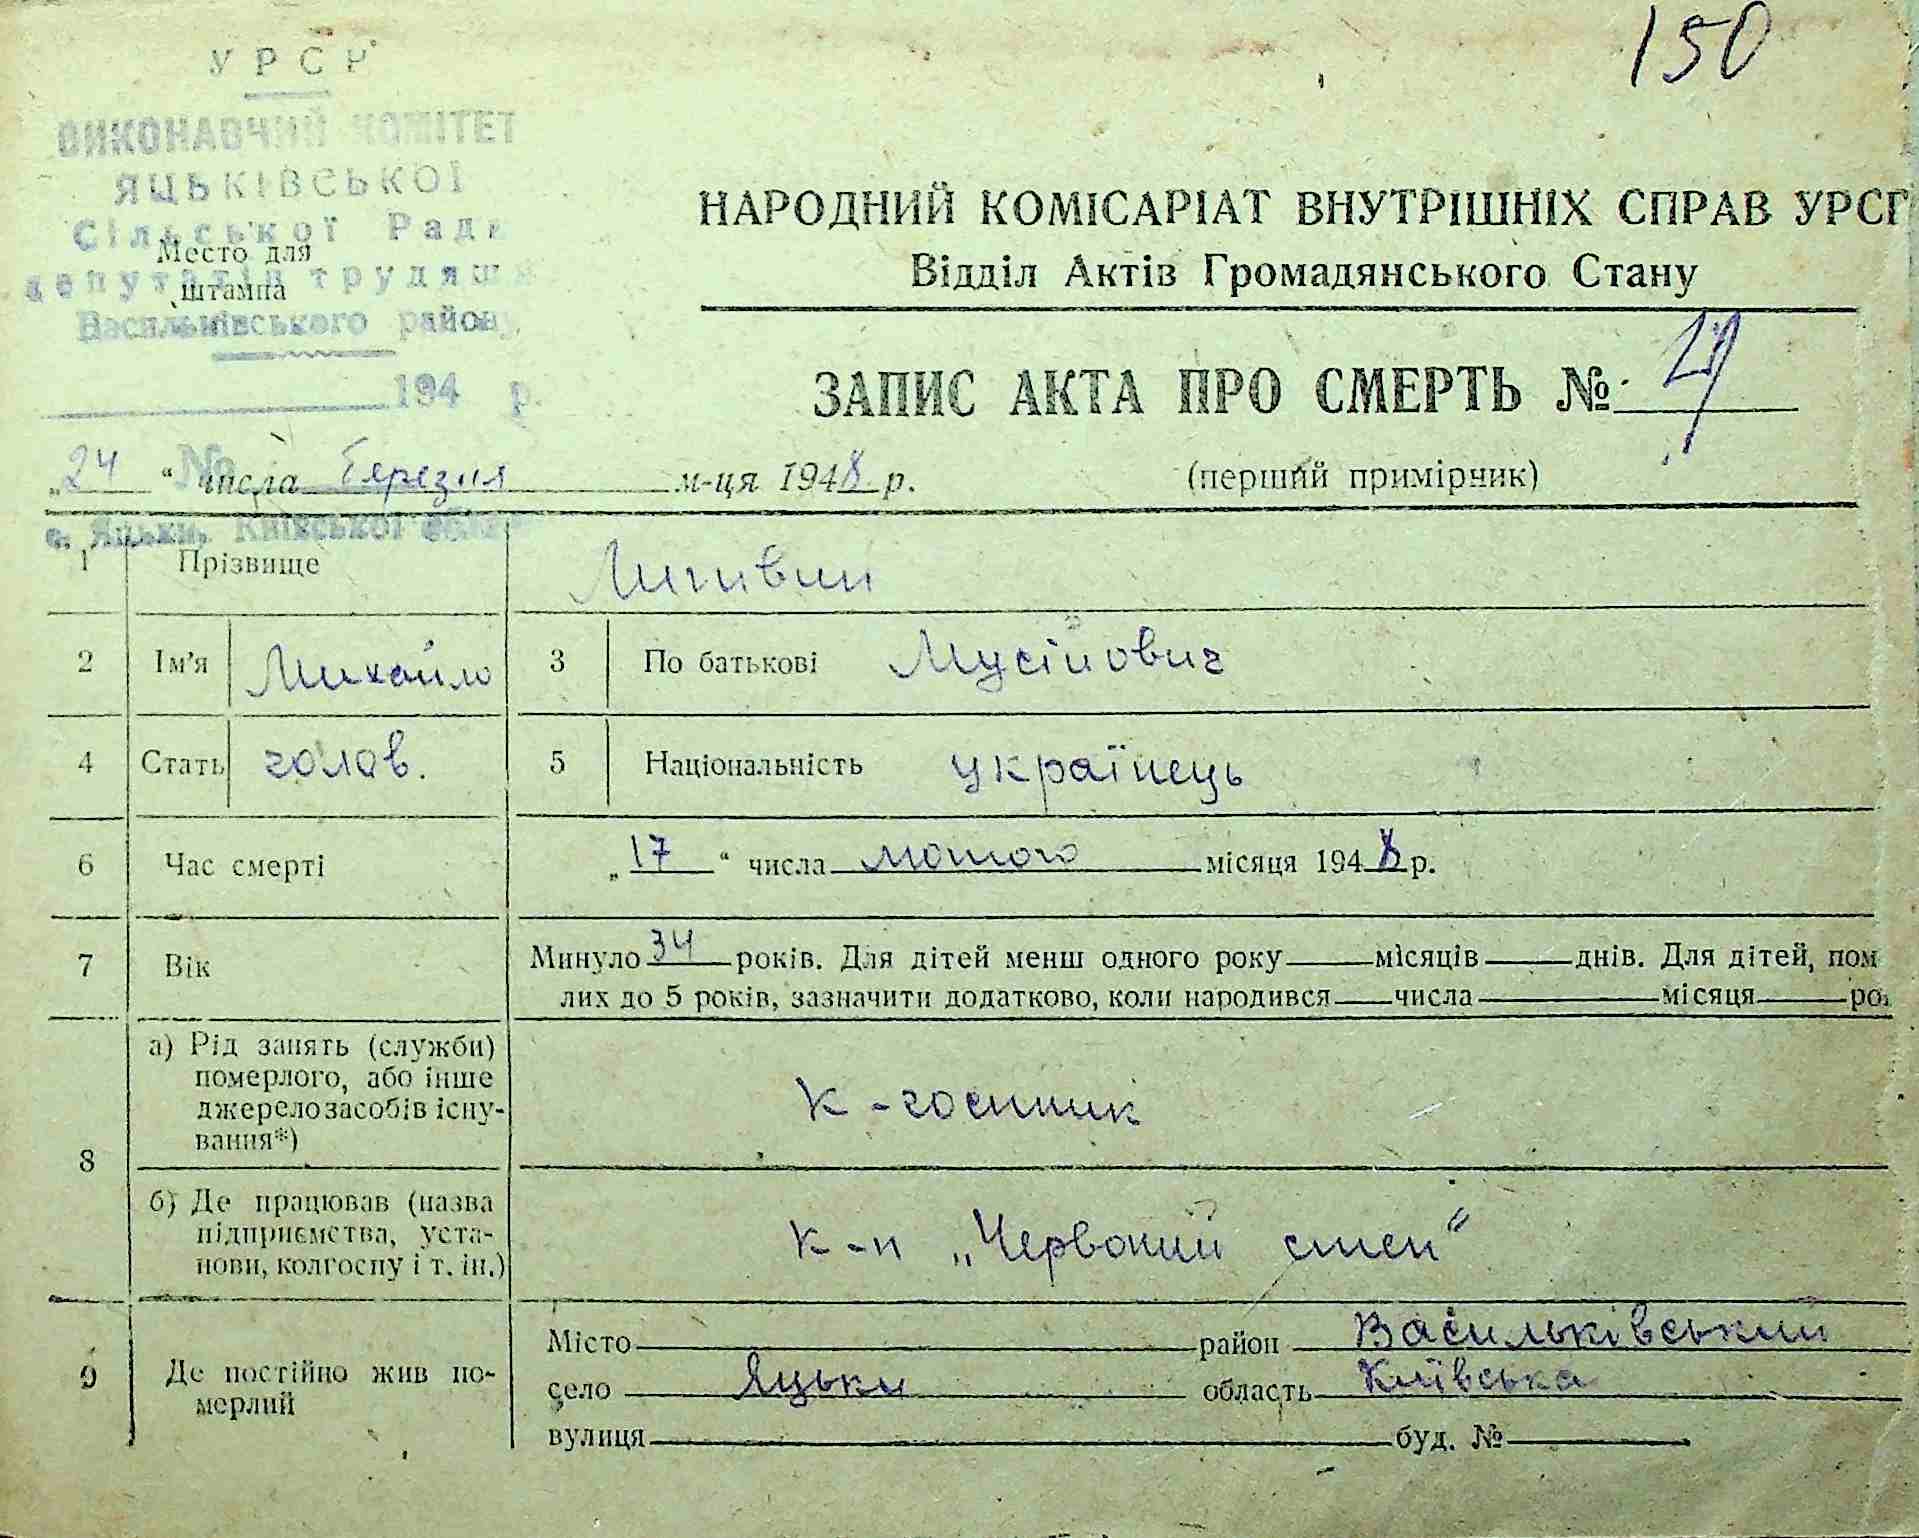 150
УРСР
ВИКОНАВЧИЙ КОМІТЕТ
ЯЦЬКІВСЬКОЇ
Сільської Ради
депутатів трудящ
Васильківського району
194 р.
№
с. Яцьки, Київської області
Место для
штампа
НАРОДНИЙ КОМІСАРІАТ ВНУТРІШНІХ СПРАВ УРСР
Відділ Актів Громадянського Стану
ЗАПИС АКТА ПРО СМЕРТЬ № 27
„24“ числа березня м-ця 1948 р.
(перший примірник)
1 Прізвище Литвин
2 Ім'я Михайло 3 По батькові Мусійович
4 Стать чолов. 5 Національність українець
6 Час смерті „17“ числа лютого місяця 1948 р.
7 Вік Минуло 34 років. Для дітей менш одного року місяців днів. Для дітей, пом
лих до 5 років, зазначити додатково, коли народився числа місяця ро
8 а) Рід занять (служби)
померлого, або інше
джерело засобів існу-
вання*)
к-госпник
б) Де працював (назва
підприємства, уста-
нови, колгоспу і т. ін.)
к-п „Червоний степ“
9 Де постійно жив по-
мерлий
Місто район Васильківський
село Яцьки область Київська
вулиця буд. №